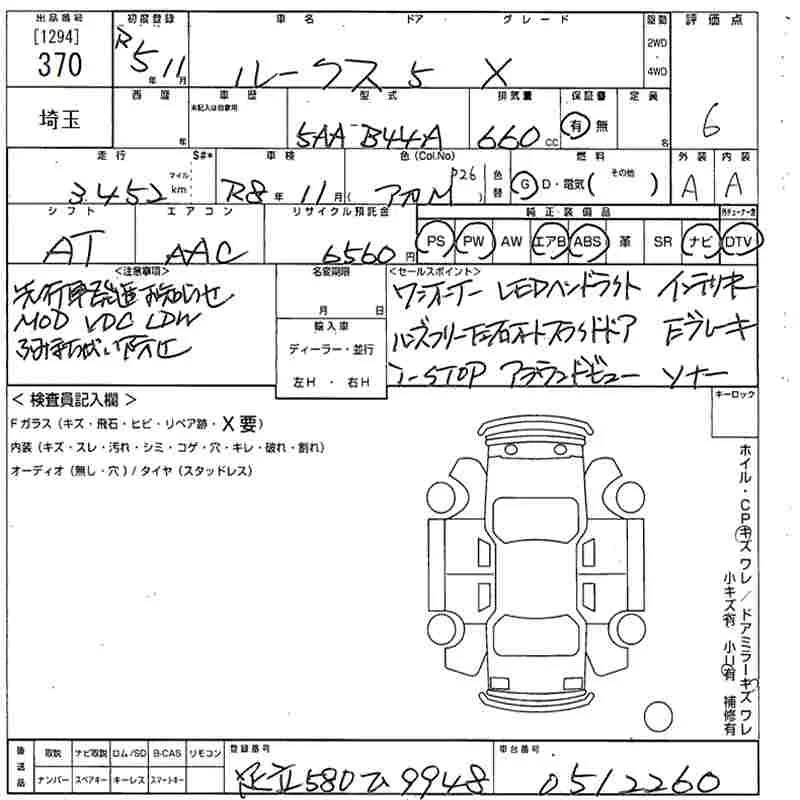 出品番号 初度登録 車名 ドア グレード 駆動 評価点
[1294] R 2WD
370 5 11 ルークス 5 X ・
年 月 4WD
埼玉 西暦 車歴 型式 排気量 保証書 定員 6
未記入は自家用
年 5AA-B44A 660 CC 有 無 名
走行 S#* 車検 色(Col.No) 色替 燃料 外装 内装
3,452 マイル km R8 年 11 月 ( アカM P26 ) G・D・電気( その他 ) A A
シフト エアコン リサイクル預託金 純正装備品 社外チューナー含
AT AAC 6560 円 PS PW AW エアB ABS 革 SR ナビ DTV
<注意事項> 名変期限 <セールスポイント>
MOD VDC LDW
月 日
ワンオーナー LEDヘッドライト インテリキー
輸入車
ディーラー・並行
左H ・ 右H
ハンズフリー左右オートスライドドア Eブレーキ
I-STOP アラウンドビュー ソナー
< 検査員記入欄 > キーロック
Fガラス(キズ・飛石・ヒビ・リペア跡・X要)
内装(キズ・スレ・汚れ・シミ・コゲ・穴・キレ・破れ・割れ)
オーディオ(無し・穴)/タイヤ(スタッドレス)
ホイル・CPキズ ワレ/ドアミラーキズ ワレ
小キズ有 小U有 補修有
後送品 取説 ナビ取説 ロム/SD B-CAS リモコン 登録番号 車台番号
ナンバー スペアキー キーレス スマートキー 足立580ひ9948 0512260